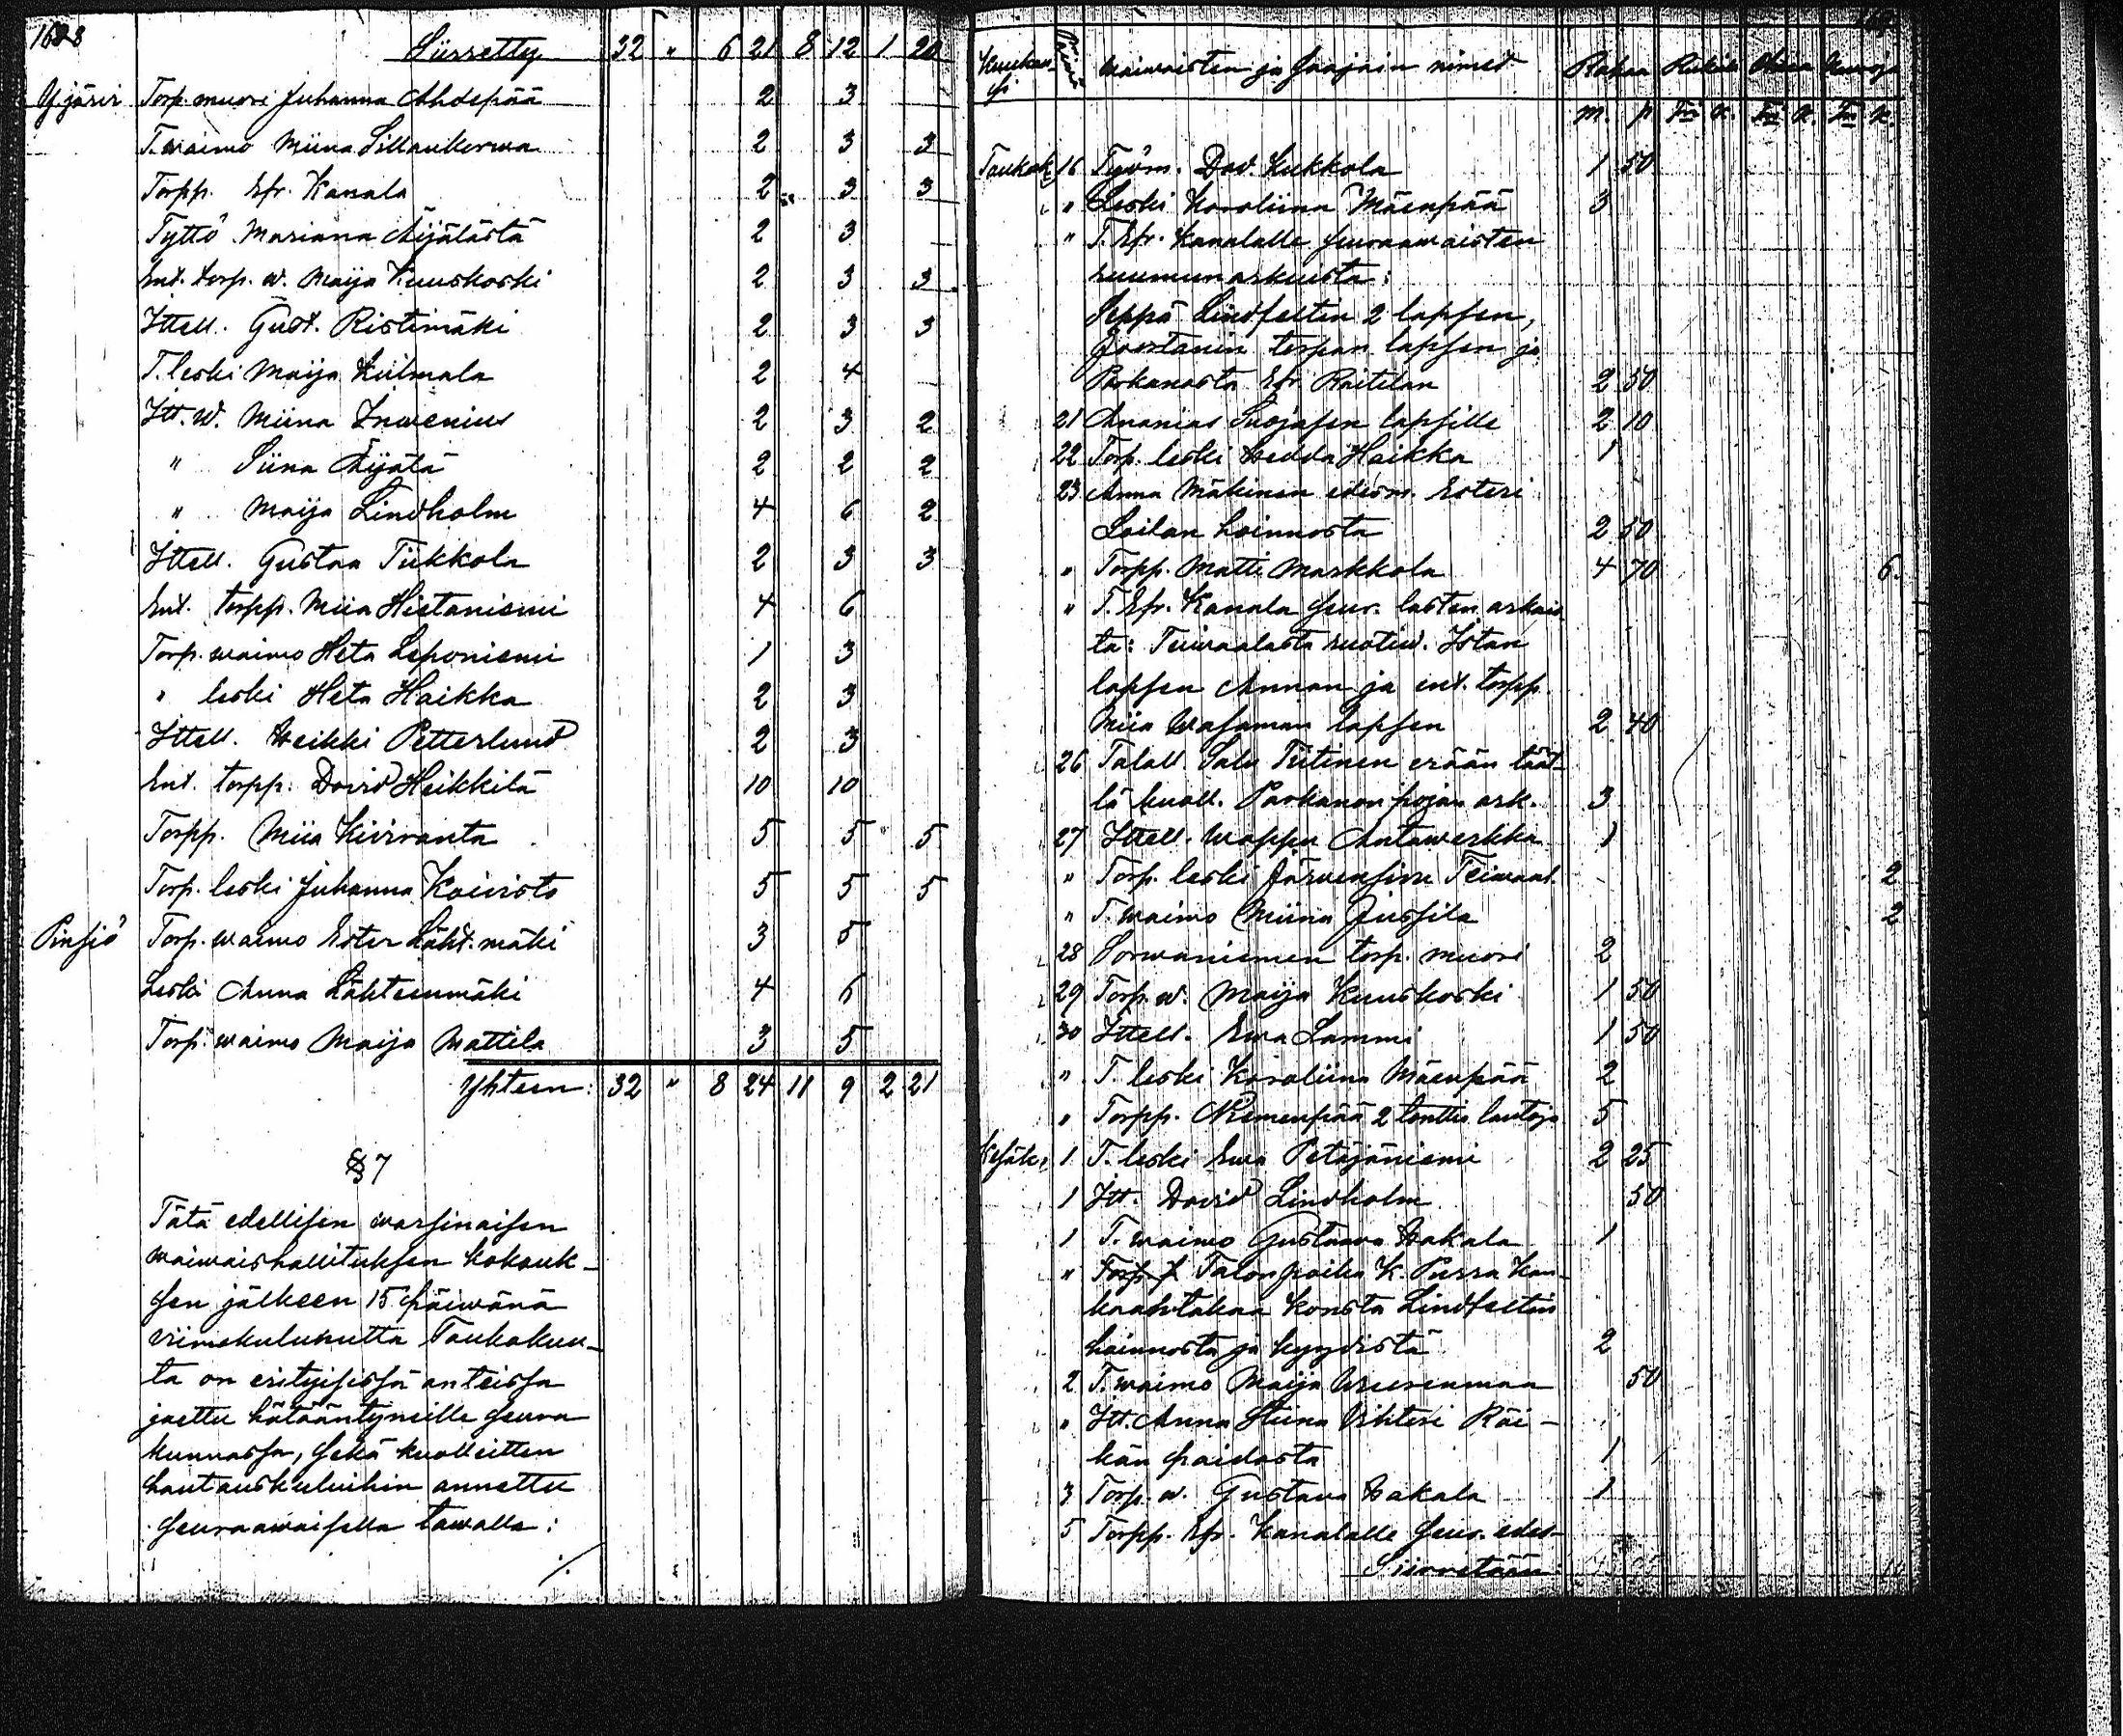 Siirretty 32 " 6 21 8 12 1 20
Y.järvi Torp. muori Juhanna Ahdepää 2 3
T. waimo Miina Sillankorwa 2 3 3
Torpp. Efr. Kanala 2 3 3
Tyttö Mariana Äijälästä 2 3
Ent. torp. w. Maija Kuuskoski 2 3 3
Ittell. Gust. Ristimäki 2 3 3
T. leski Maija Kulmala 2 4
Itt. w. Miina Inwenius 2 3 2
" Siina Äijälä 2 2 2
" Maija Lindholm 4 6 2
Ittell. Gustaa Tiikkola 2 3 3
Ent. torpp. Miia Hietaniemi 4 6
Torp. waimo Heta Leponiemi 1 3
" leski Heta Haikka 2 3
Ittell. Heikki Petterlund 2 3
Ent. torpp. David Heikkilä 10 10
Torpp. Miia Kiviranta 5 5 5
Torp. leski Juhanna Koivisto 5 5 5
Pinsiö Torp. waimo Ester Läht.mäki 3 5
Leski Anna Lähteenmäki 4 6
Torp. waimo Maija Mattila 3 5
Yhteen: 32 " 8 24 11 9 2 21
§ 7
Tätä edellisen warsinaisen
waiwaishallituksen kokouk-
sen jälkeen 15 päiwänä
viimekulunutta Toukokuu-
ta on erityisissä anteissa
jaettu hätääntyneille seura
kunnassa, sekä kuolleitten
hautauskuluihin annettu
seuraawaisella tawalla:
./.
Kuukau-
si Päiwä Waiwaisten ja saajain nimet Rahaa Rukiita Ohria Kauroj
m. p. Tn: K. Tn K. Tn K.
Toukok. 16 Työm. Dav. Kukkola 1 50
" Leski Karoliina Mäenpää 3
" T. Efr. Kanalalle seuraawaisten
ruumunarkuista:
Seppä Lindfeltin 2 lapsen,
Joortanin torpan lapsen ja
Parkanosta Efr Raitilan 2 50
21 Ananias Suojasen lapsille 2 10
22 Torp. leski Hedda Haikka 1
23 Anna Mäkinen edesm. Esteri
Loilan hoinnosta 2 50
" Torpp. Matti Markkola 4 70 6.
" T. Efr. Kanala seur. lasten arkuis
ta: Teiwaalasta ruotiw. Istan
lapsen Annan ja ent. torpp.
Miia Wasaman lapsen 2 40
26 Talall. Salu Tiitinen erään tääl-
lä kuoll. Parkanon pojan ark. 3
27 Ittell. Wappu Antawerkka 1
" Torp. leski Järwensivu Teiwaal. 2
" T. waimo Miina Jussila 2
28 Sorwaniemen torp. muori 2
29 Torp. w. Maija Kuuskoski 1 50
30 Ittell. Ewa Lammi 1 50
" T. leski Karoliina Mäenpää 2
" Torpp. Niemenpää 2 tolttia lautoja 5
Kesäk. 1 T. leski Ewa Petäjäniemi 2 25
1 Itt. David Lindholm 50
1 T. waimo Gustaawa Hakala 1
" Talonpoika K. Pursa Kan-
kaantakaa Konsta Lindfeltin
hoinnosta ja kyydistä 2
2 T. waimo Maija Uusenmaa 50
" Itt. Anna Stiina Vihteri Räi-
kän paidasta 1
3 Torp. w. Gustava Hakala 1
5 Torpp. Efr. Kanalalle seur. edes-
Siirretään: 11